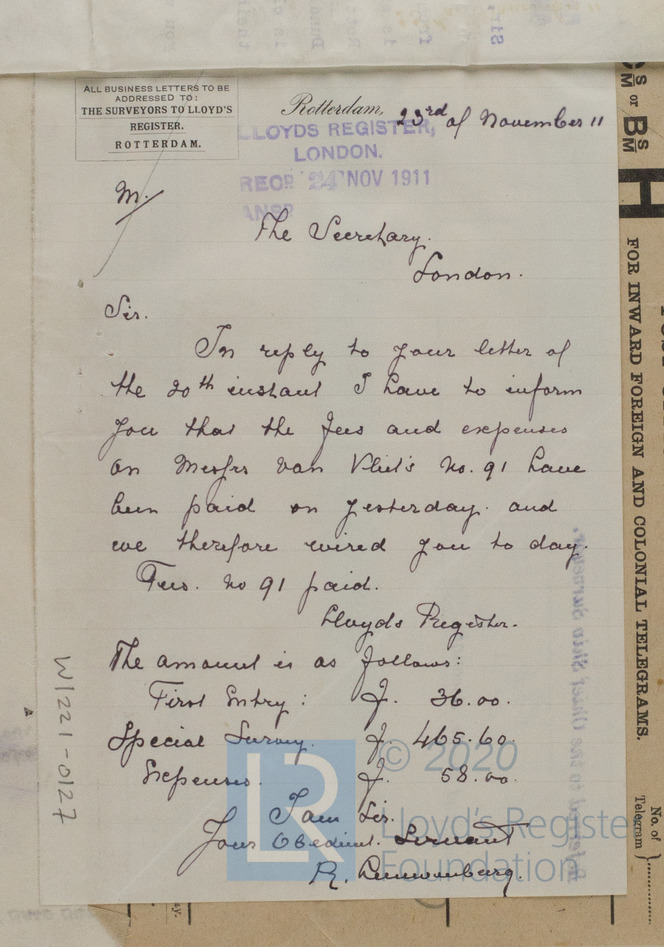 ALL BUSINESS LETTERS TO BE
ADDRESSED TO:
THE SURVEYORS TO LLOYD'S
REGISTER.
ROTTERDAM.
Rotterdam, 23rd of November 11
LLOYDS REGISTER,
LONDON.
RECD 24 NOV 1911
M.
The Secretary.
London.
Sir.
In reply to your letter of
the 20th instant I have to inform
you that the fees and expenses
on Messrs Van Vliet's No. 91 have
been paid on yesterday. and
we therefore wired you to day.
Fees. No 91 paid.
Lloyds Register.
The amount is as follows:
First Entry: f. 36.00.
Special Survey. f. 465.60.
Expenses. f. 58.00.
I am Sir.
Your Obedient. Servant
R.
W1221-0127
© 2020
LR
Lloyd's Register
Foundation
S S
M or M
B S
M
H
FOR INWARD FOREIGN AND COLONIAL TELEGRAMS.
No. of
Telegram